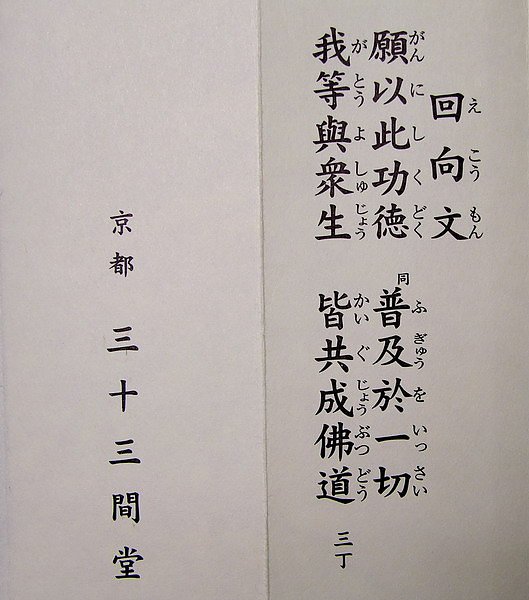 回向文
えこうもん
願以此功徳 同 普及於一切
がんにしくどく ふぎゅうをいっさい
我等與衆生 皆共成佛道
がとうよしゅじょう かいぐじょうぶつどう
三丁
京都 三十三間堂